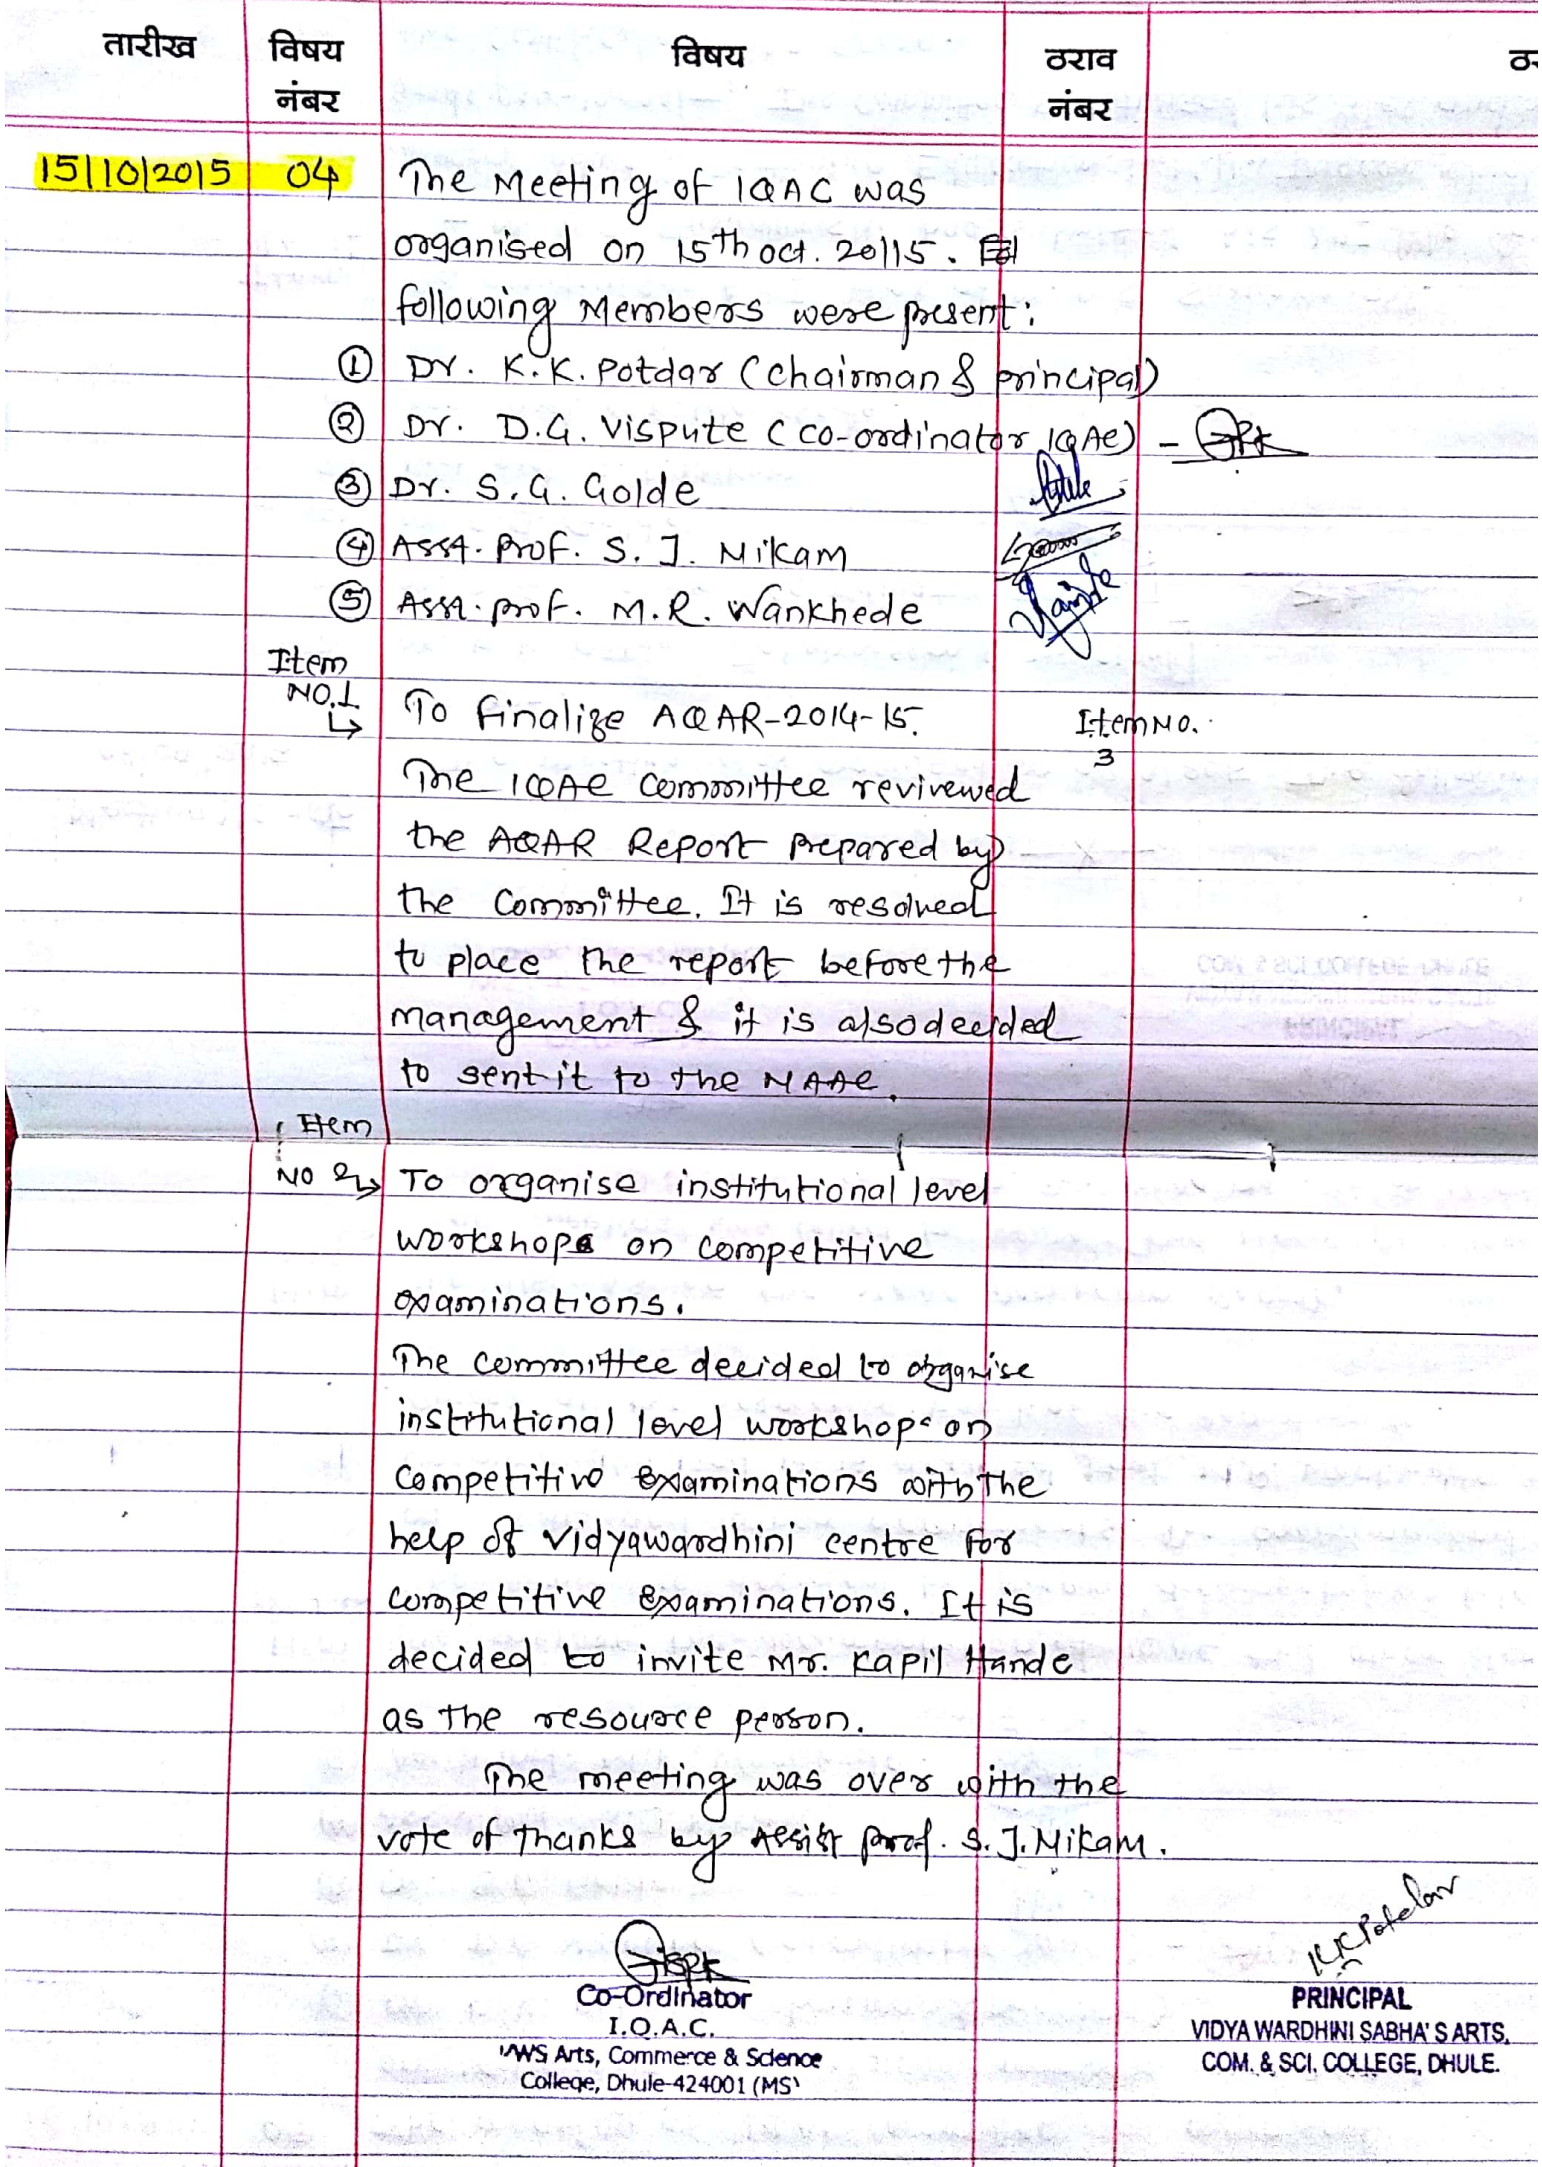 तारीख विषय नंबर विषय ठराव नंबर
15/10/2015 04 The Meeting of IQAC was
organised on 15th oct. 20115.
following Members were present:
① Dr. K.K. Potdar (Chairman & principal)
② Dr. D.G. Vispute (Co-ordinator IQAC) -
③ Dr. S.G. Golde
④ Asst. Prof. S. J. Nikam
⑤ Asst. prof. M.R. Wankhede
Item
NO.1
↳ To finalize AQAR-2014-15.
Item NO.
3
The IQAC Committee revirewed
the AQAR Report prepared by
the Committee. It is resolved
to place the report before the
management & it is also decided
to sent it to the NAAC.
Item
NO 2↳ To organise institutional level
workshops on competitive
examinations.
The committee decided to organise
institutional level workshop on
competitive examinations with the
help of Vidyawardhini centre for
competitive examinations. It is
decided to invite Mr. Kapil Hande
as the resource person.
The meeting was over with the
vote of Thanks by Assist prof. S. J. Nikam.
K K Potdar
Co-Ordinator
I.Q.A.C.
VWS Arts, Commerce & Science
College, Dhule-424001 (MS)
PRINCIPAL
VIDYA WARDHINI SABHA'S ARTS,
COM. & SCI. COLLEGE, DHULE.